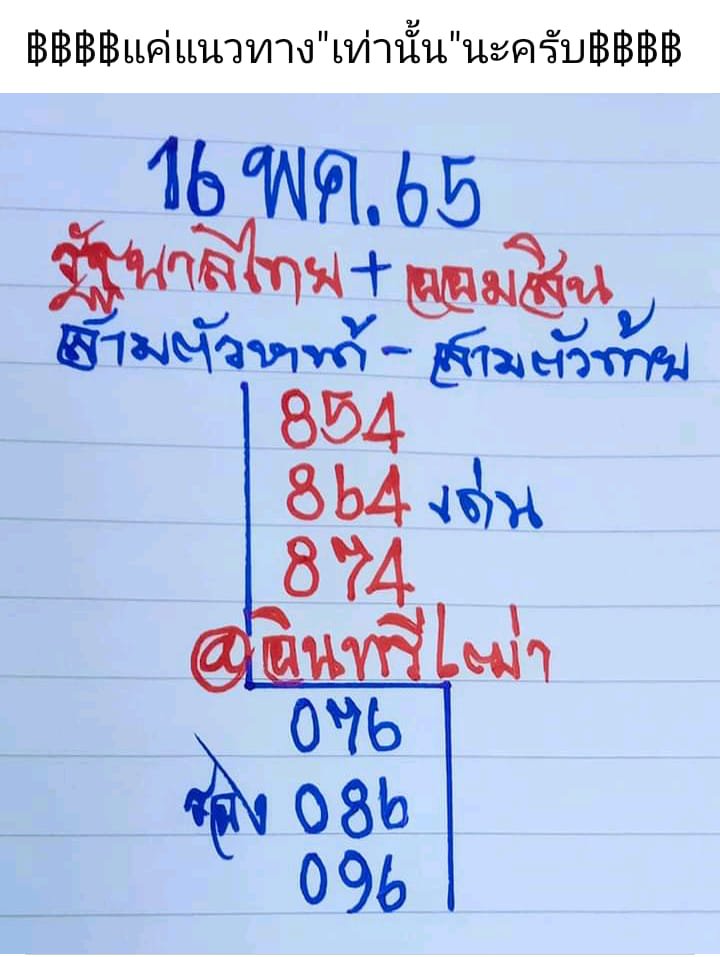 ฿฿฿฿แค่แนวทาง"เท่านั้น"นะครับ฿฿฿฿
16 พค.65
รัฐบาลไทย + ออมสิน
สามตัวหน้า - สามตัวท้าย
854
864 เด่น
874
@อินทรีเฒ่า
076
รอง 086
096